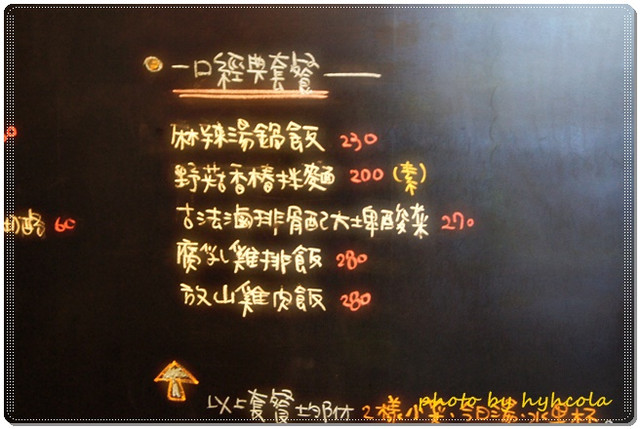 一口經典套餐
麻辣湯鍋飯 230
野菇香椿拌麵 200 (素)
古法滷排骨配大埤酸菜 270
腐乳雞排飯 280
放山雞肉飯 280
60
以上套餐均附 2樣小菜、今日湯、水果杯
photo by hyhcola